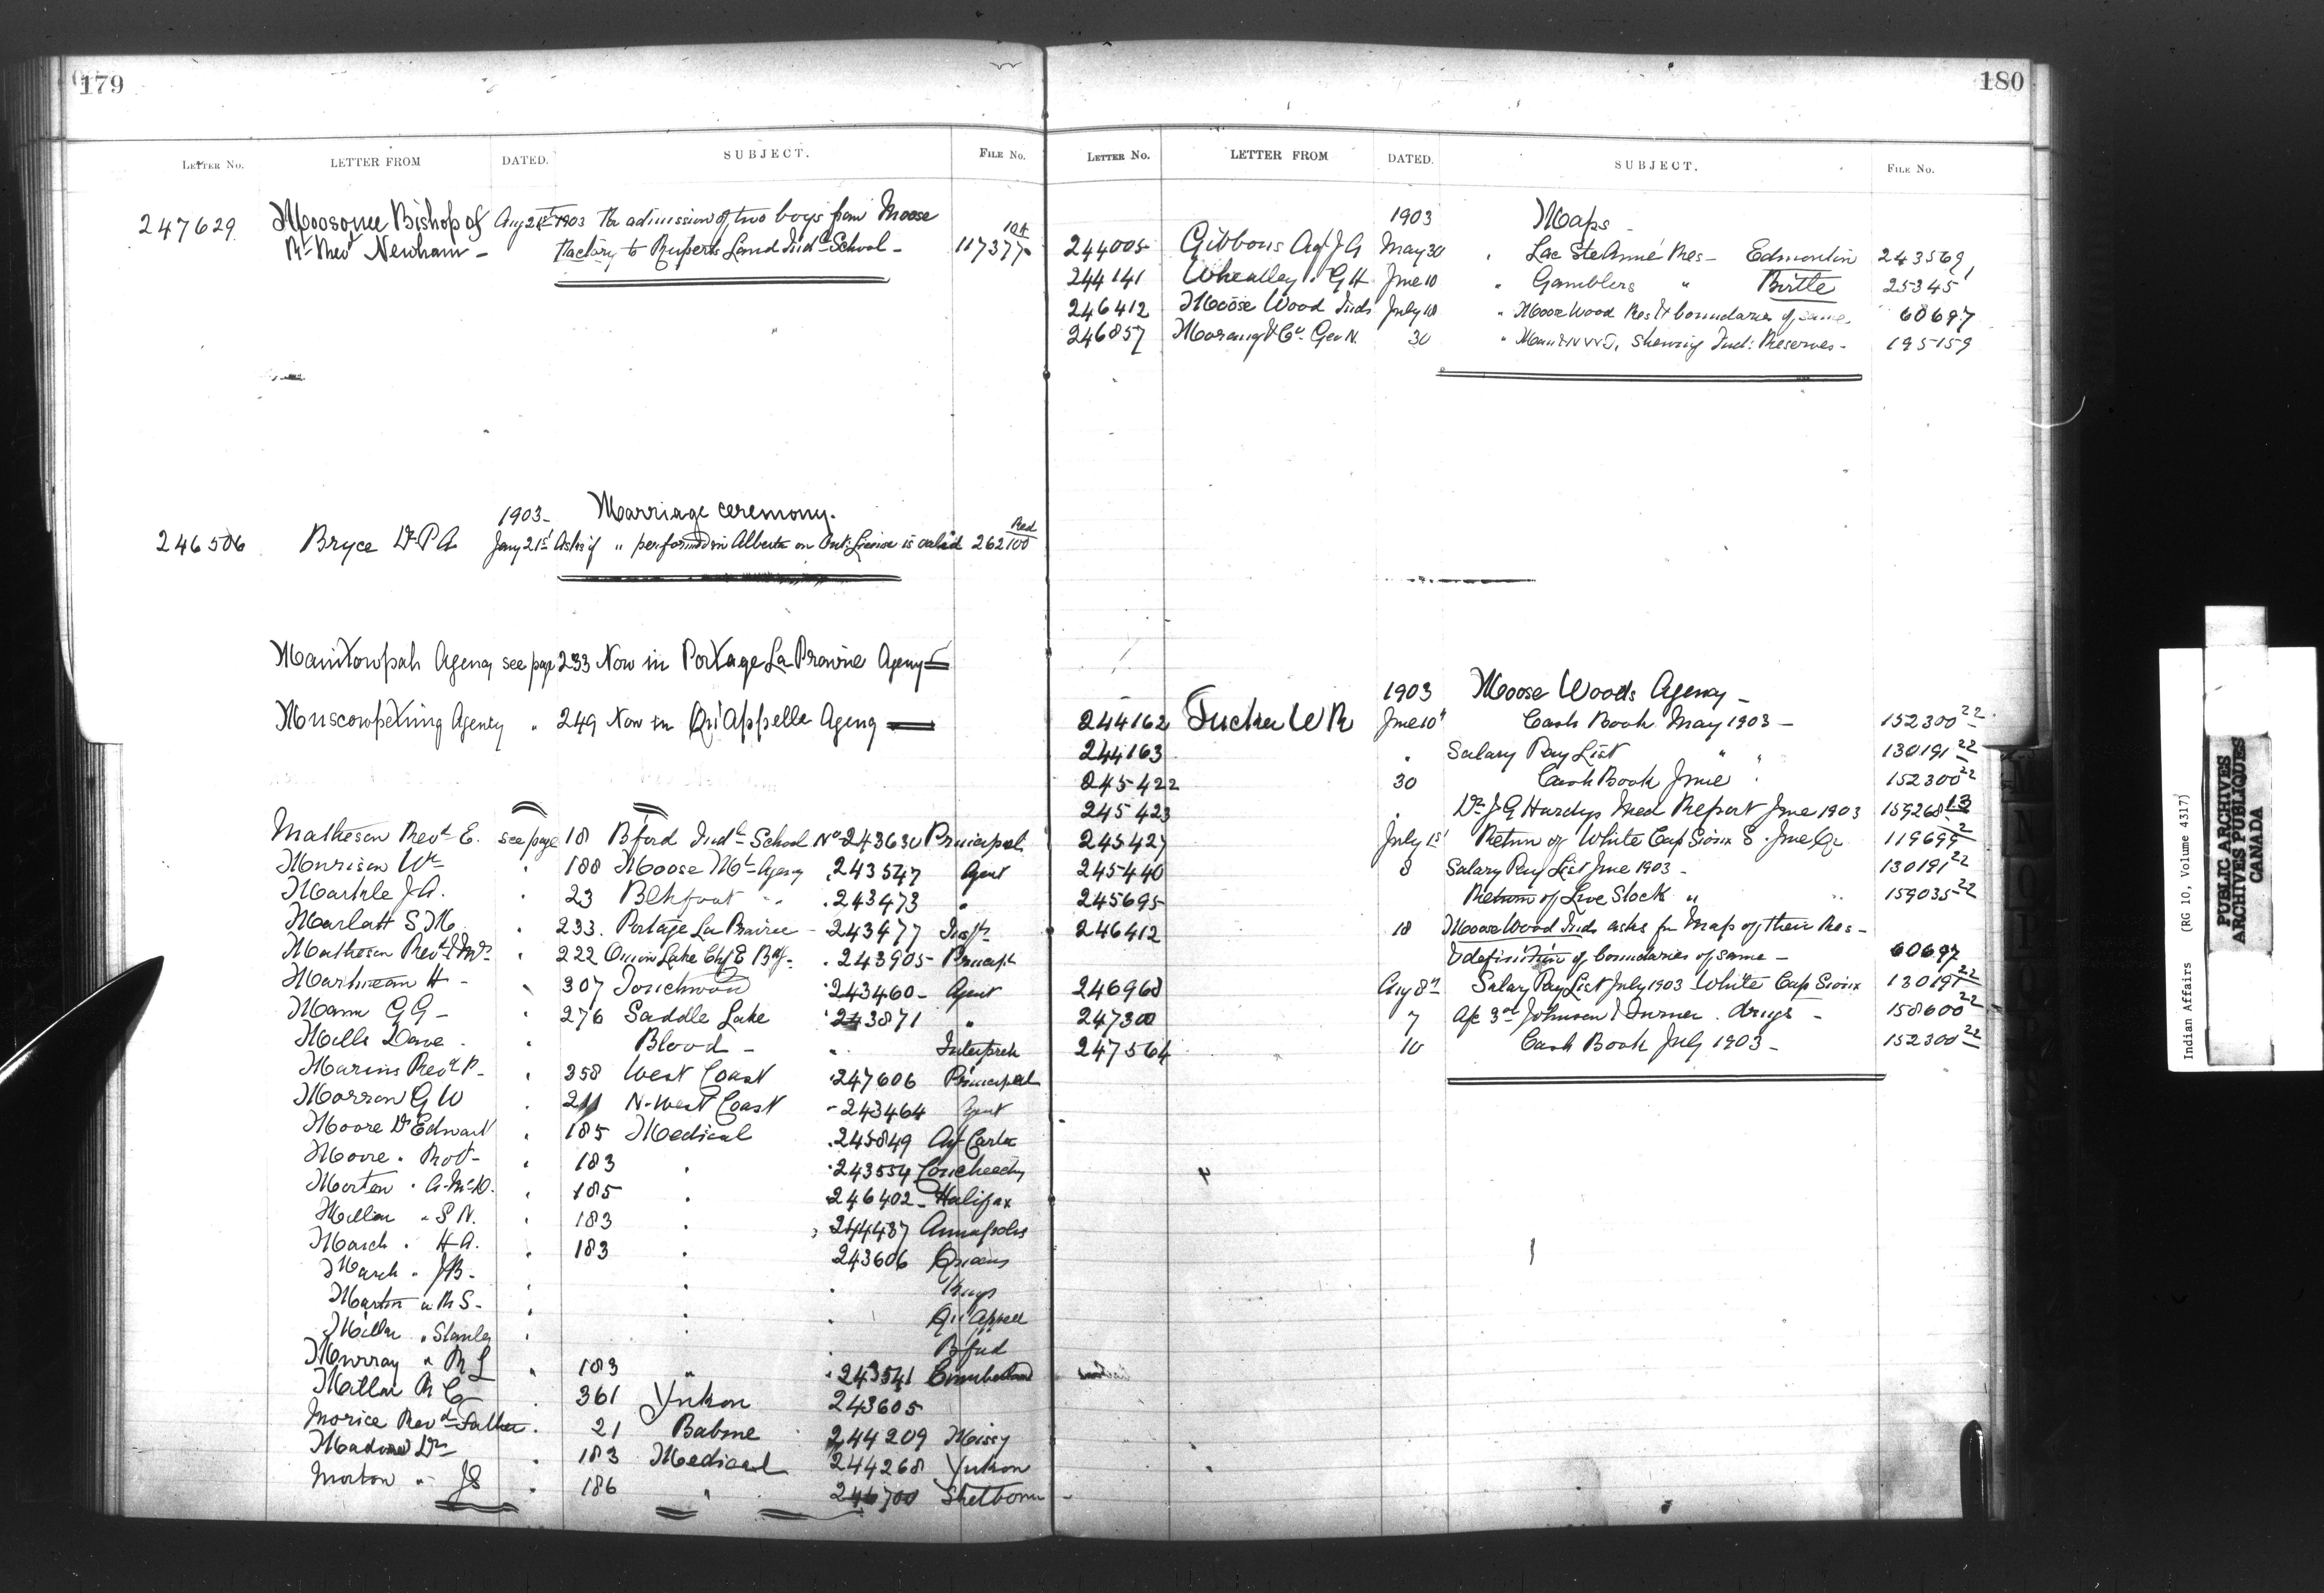 179
LETTER No. LETTER FROM DATED. SUBJECT. FILE No.
247629 Moosonee Bishop of Aug 21st 1903 Re admission of two boys from Moose
Rt Revd Newham - Factory to Ruperts Land Indl School - 117377
1903 - Marriage ceremony.
246506 Bryce Dr P A Jany 21st Asks if " performed in Alberta on Ont: License is valid 262100 Red
Manitowpah Agency see page 233 Now in Portage La Prairie Agency
Muscowpetung Agency " 249 Now in Qu'Appelle Agency
Matheson Revd E. see page 181 Bford Indl School No 243630 Principal
Murison Wm " 188 Moose Mt Agency 243547 Agent
Markle J A. " 23 Blkfoot " 243473 "
Marlatt S M. " 233. Portage La Prairie - 243477 Insp
Matheson Revd J R " 222 Onion Lake 243905 - Principl
Martineau H - " 307 Touchwood 243460 - Agent
Mann G G - " 276 Saddle Lake 243871 "
Mills Dave - " Blood - " Interpreter
Marins Revd P - " 358 West Coast 247606 Principal
Morrow G W " 211 N-West Coast - 243464 Agent
Moore Dr Edward " 185 Medical 245849
Moore " Robt - " 183 " 243554
Morton " A. McD. " 185 " 246402 - Halifax
Miller " S N. " 183 " 244487 Annapolis
March " H A. " 183 " 243606 Queens
March " J B - " " " Kings
Martin " R S - " " " Qu'Appell
Miller " Stanley " " Bford
Murray " R L " 183 " 243541 Cumberland
Millar R C " 361 Yukon 243605
Morice Revd Father " 21 Babine 244209 Missy
Dr " 183 Medical 244268 Yukon
Morton " J S " 186 " 246700 Shelborne -
180
LETTER No. LETTER FROM DATED. SUBJECT. FILE No.
1903 Maps -
244005 Gibbons Agt J G May 30 " Lac Ste Anne Res - Edmonton 243569
244141 Wheatley G H June 10 " Gamblers " Birtle 25345
246412 Moose Wood Inds July 18 " Moose Wood Res & boundaries of same. 60697
246857 Morang & Co. Geo N. 30 " Man & N W T, shewing Ind: Reserves - 195159
1903 Moose Woods Agency -
244162 Tucker W R June 10" Cash Book May 1903 - 152300 22
244163 " Salary Pay List " " 130191 22
245422 30 Cash Book June " 152300 22
245423 " Dr J G Hardys Med Report June 1903 159268 13
245427 July 1st Return of White Cap Sioux S. June Qr 119699 2
245440 8 Salary Pay List June 1903 - 130191 22
245695 Return of Live Stock " " 159035 22
246412 18 Moose Wood Inds asks for Map of their Res -
& definition of boundaries of same - 60697
246968 Aug 8th Salary Pay List July 1903 White Cap Sioux 130191 22
247300 7 A/c 3rd Johnson & Turner. drugs - 158600 22
247564 10 Cash Book July 1903 - 152300 22
Indian Affairs (RG 10, Volume 4317)
PUBLIC ARCHIVES
ARCHIVES PUBLIQUES
CANADA